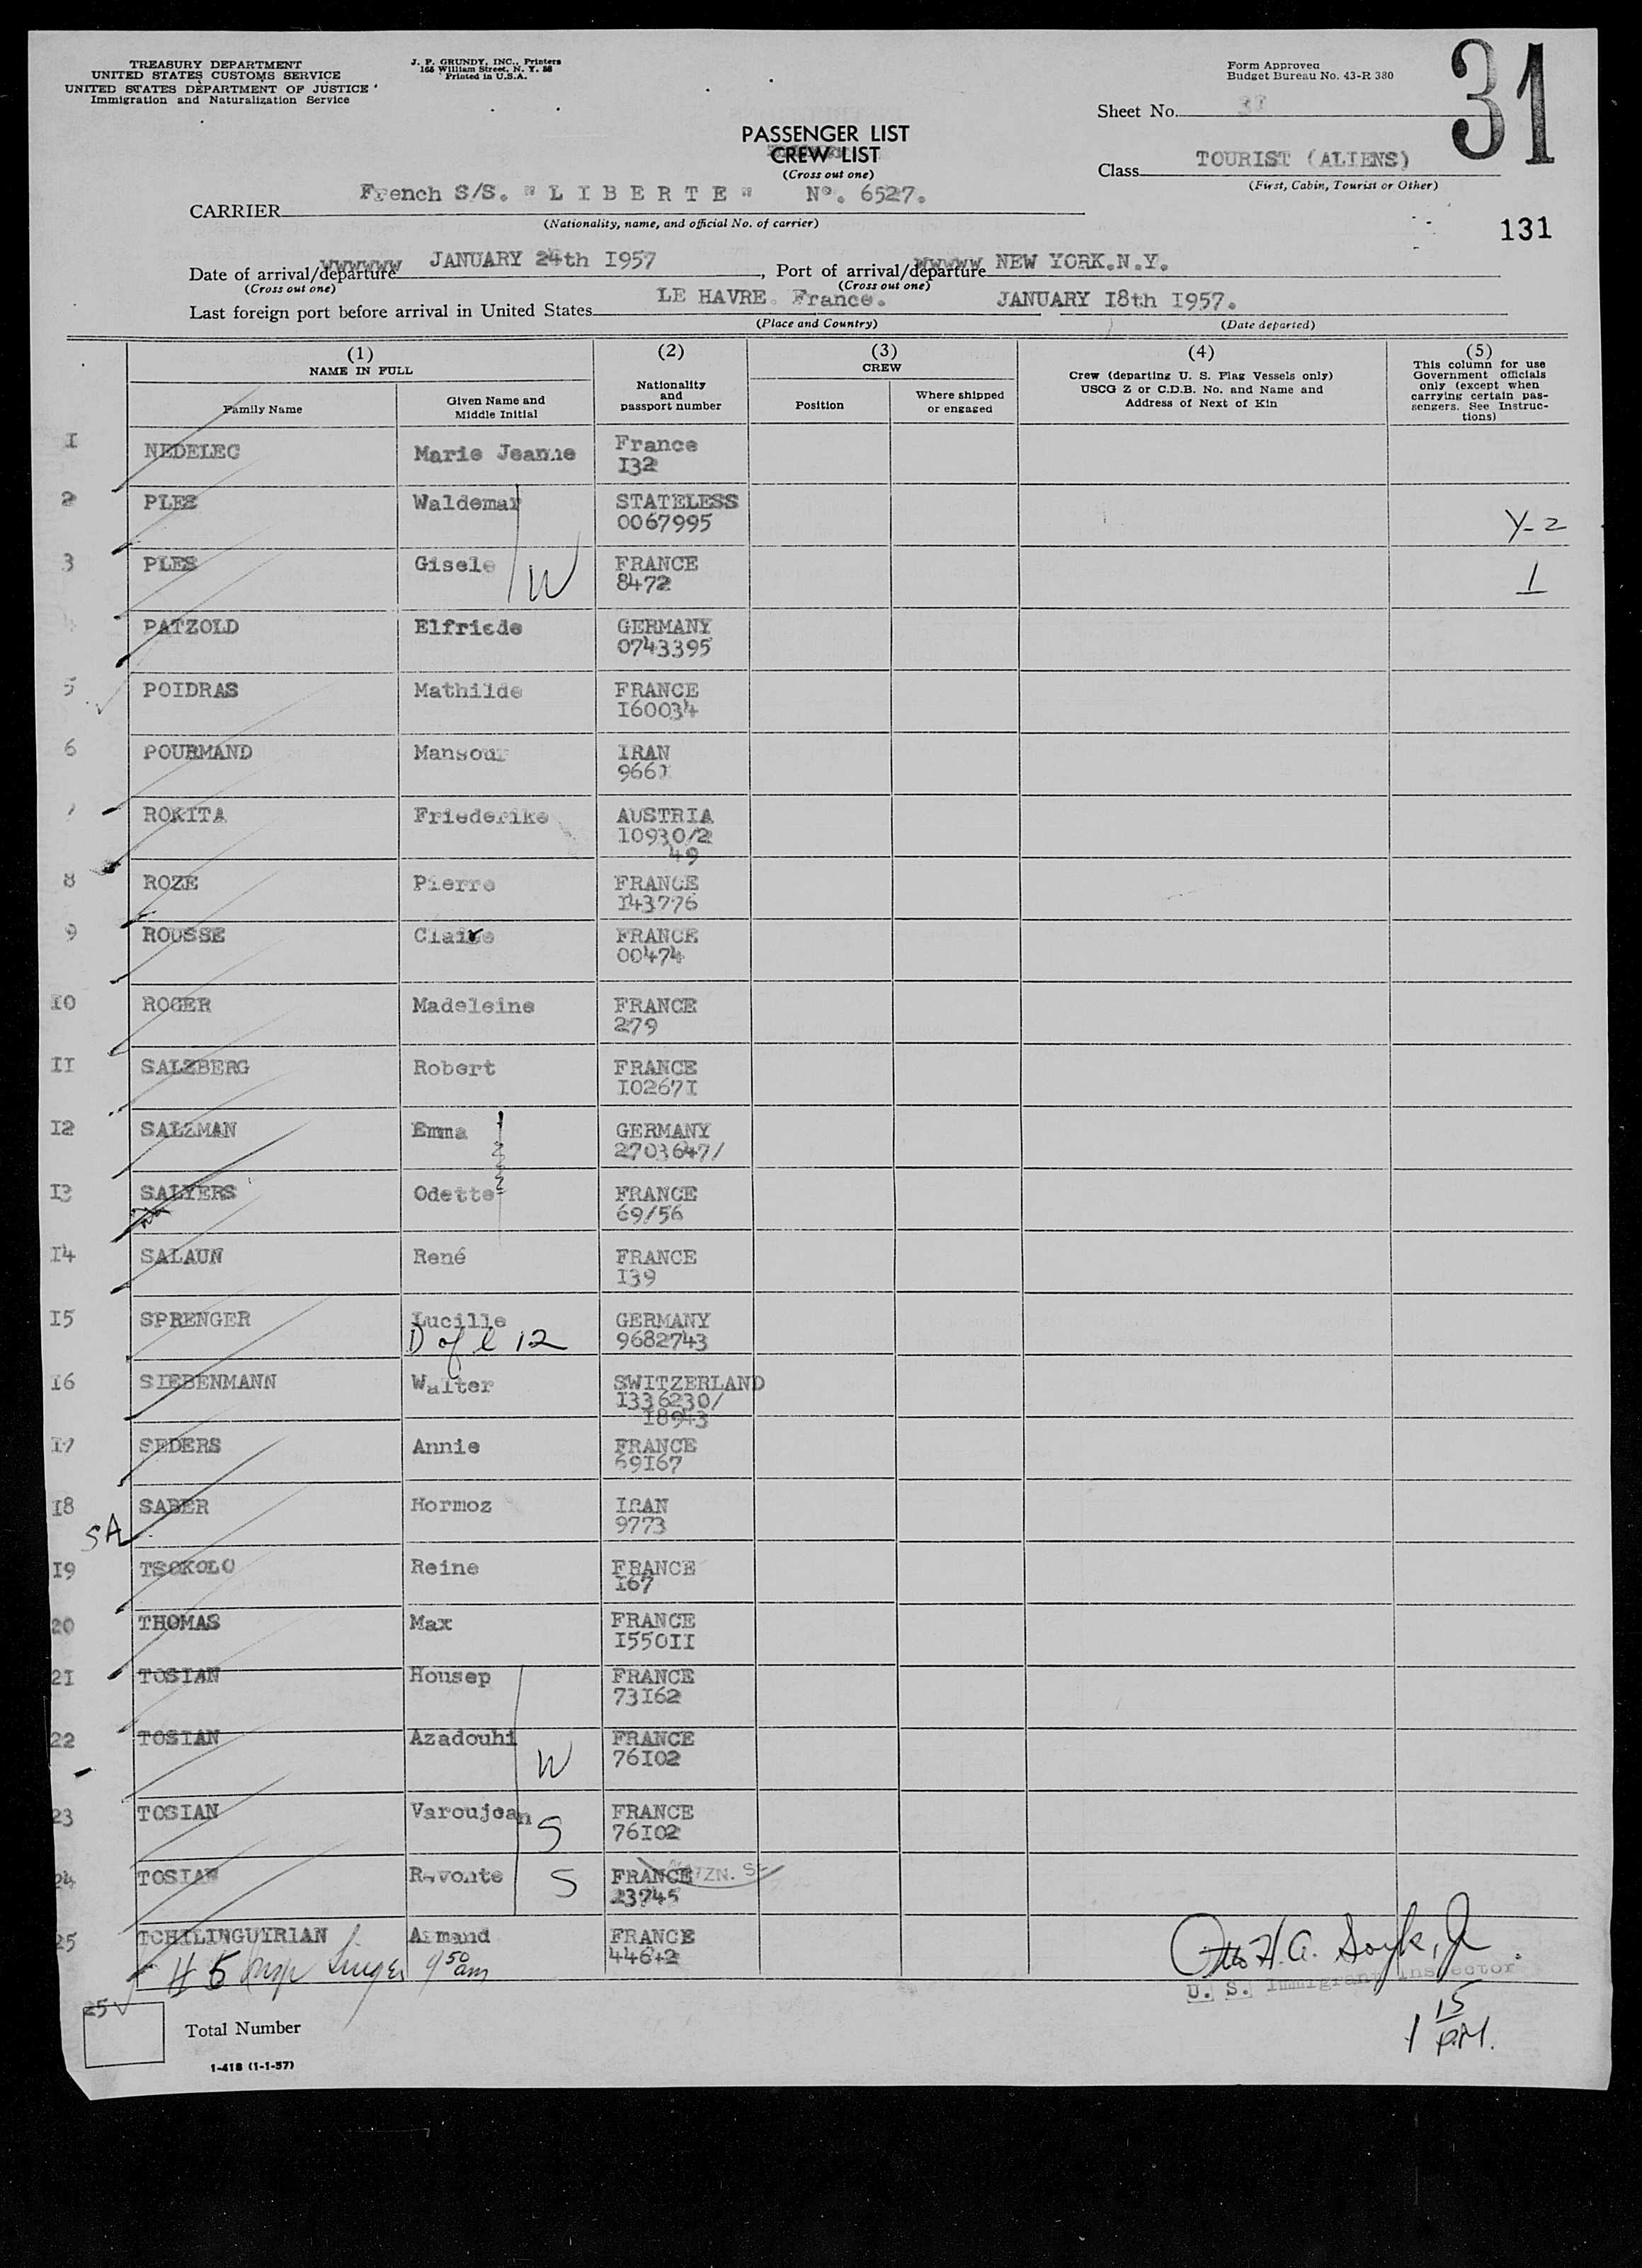 TREASURY DEPARTMENT
UNITED STATES CUSTOMS SERVICE
UNITED STATES DEPARTMENT OF JUSTICE
Immigration and Naturalization Service
J. P. GRUNDY, INC., Printers
166 William Street, N. Y. 38
Printed in U.S.A.
Form Approved
Budget Bureau No. 43-R 380
31
Sheet No. 31
PASSENGER LIST
CREW LIST
(Cross out one)
Class TOURIST (ALIENS)
(First, Cabin, Tourist or Other)
CARRIER French S/S. "LIBERTE" N°. 6527.
(Nationality, name, and official No. of carrier)
131
Date of arrival/departure JANUARY 24th I957, Port of arrival/departure NEW YORK.N.Y.
(Cross out one) (Cross out one)
Last foreign port before arrival in United States LE HAVRE. France. JANUARY I8th I957.
(Place and Country) (Date departed)
(1) (2) (3) (4) (5)
NAME IN FULL
Family Name
Given Name and
Middle Initial
Nationality
and
passport number
CREW
Position
Where shipped
or engaged
Crew (departing U. S. Flag Vessels only)
USCG Z or C.D.B. No. and Name and
Address of Next of Kin
This column for use
Government officials
only (except when
carrying certain pas-
sengers. See Instruc-
tions)
I NEDELEC Marie Jeanne France
I32
2 PLES Waldemar STATELESS
0067995 Y-2
3 PLES Gisele W FRANCE
8472 1
4 PATZOLD Elfriede GERMANY
0743395
5 POIDRAS Mathilde FRANCE
I60034
6 POURMAND Mansour IRAN
966I
7 ROKITA Friederike AUSTRIA
I0930/2
49
8 ROZE Pierre FRANCE
I43776
9 ROUSSE Claire FRANCE
00474
I0 ROGER Madeleine FRANCE
279
II SALZBERG Robert FRANCE
I0267I
I2 SALZMAN Emma GERMANY
2703647/
I3 SALYERS Odette FRANCE
69/56
I4 SALAUN René FRANCE
I39
I5 SPRENGER Lucille GERMANY
D of l 12 9682743
I6 SIEBENMANN Walter SWITZERLAND
I336230/
I8943
I7 SEDERS Annie FRANCE
69I67
I8 SABER Hormoz IRAN
SA 9773
I9 TSOKOLO Reine FRANCE
I67
20 THOMAS Max FRANCE
I550II
2I TOSIAN Housep FRANCE
73I62
22 TOSIAN Azadouhi W FRANCE
76I02
23 TOSIAN Varoujean S FRANCE
76I02
24 TOSIAN S FRANCE
23745
25 TCHILINGUIRIAN Armand FRANCE
44642
# 5 Insp Singer 9 50 am
Otto H. A. Jr.
U. S. Immigrant Inspector
1 15 PM.
25
Total Number
I-418 (1-1-57)